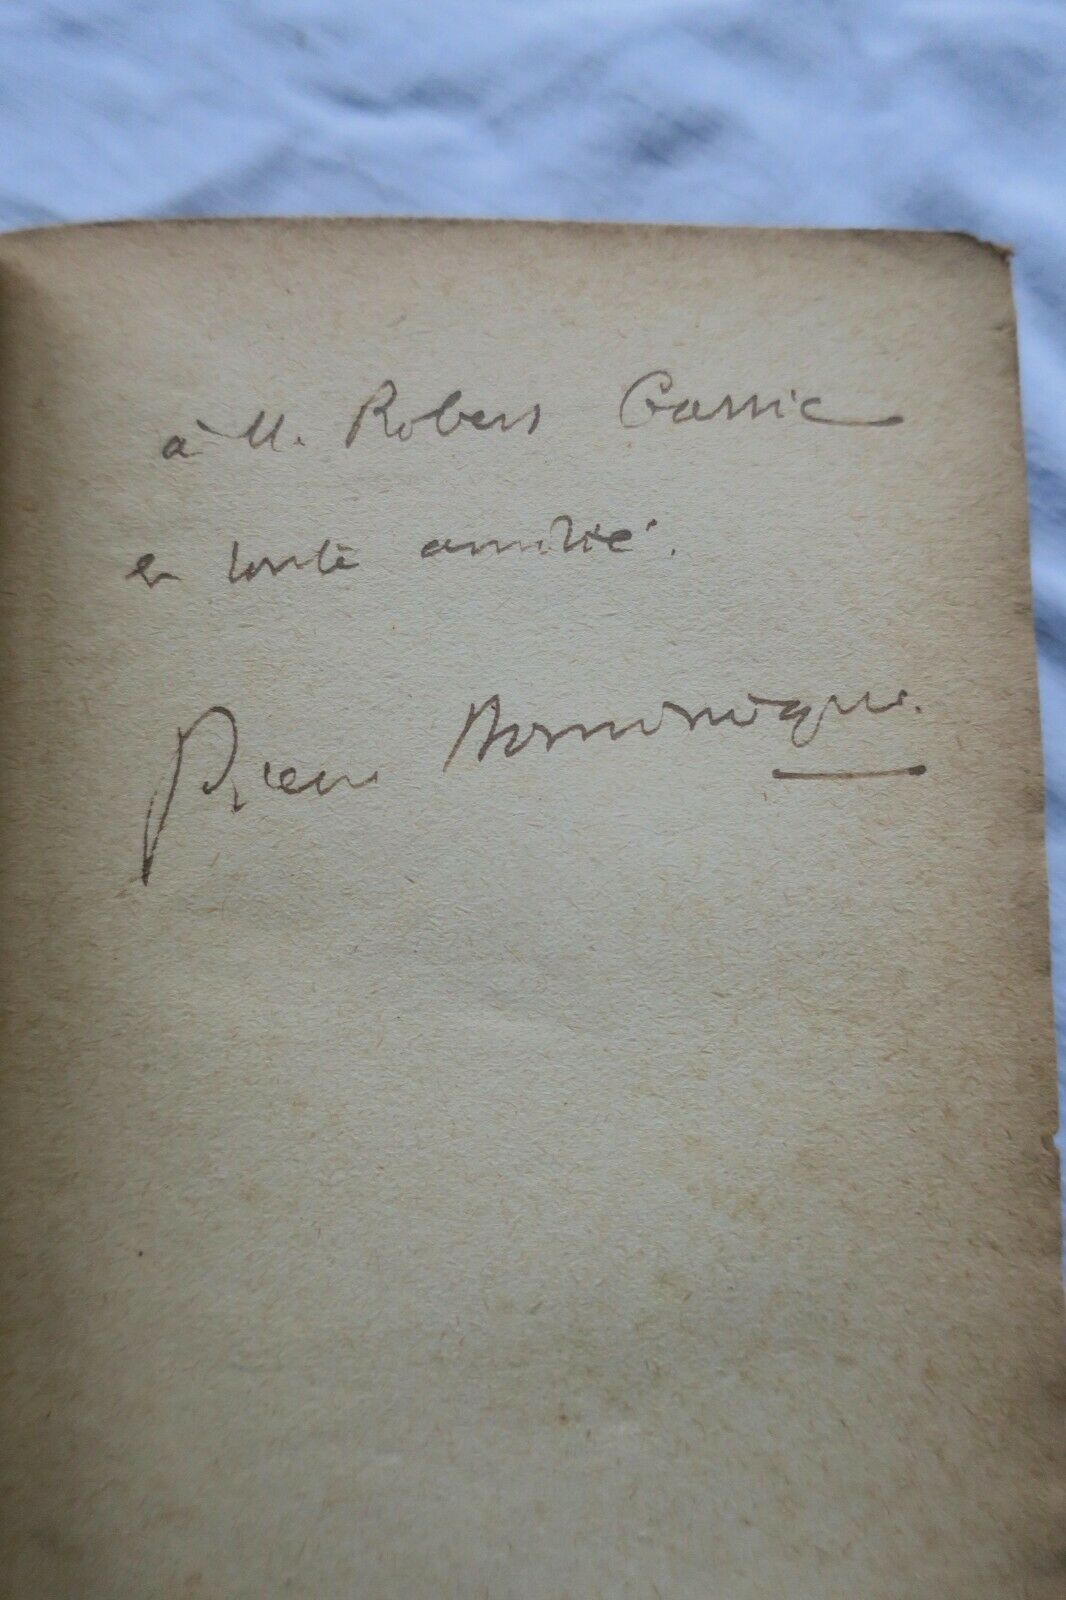 à M. Robert Garric
en toute amitié.
Pierre Dominique.